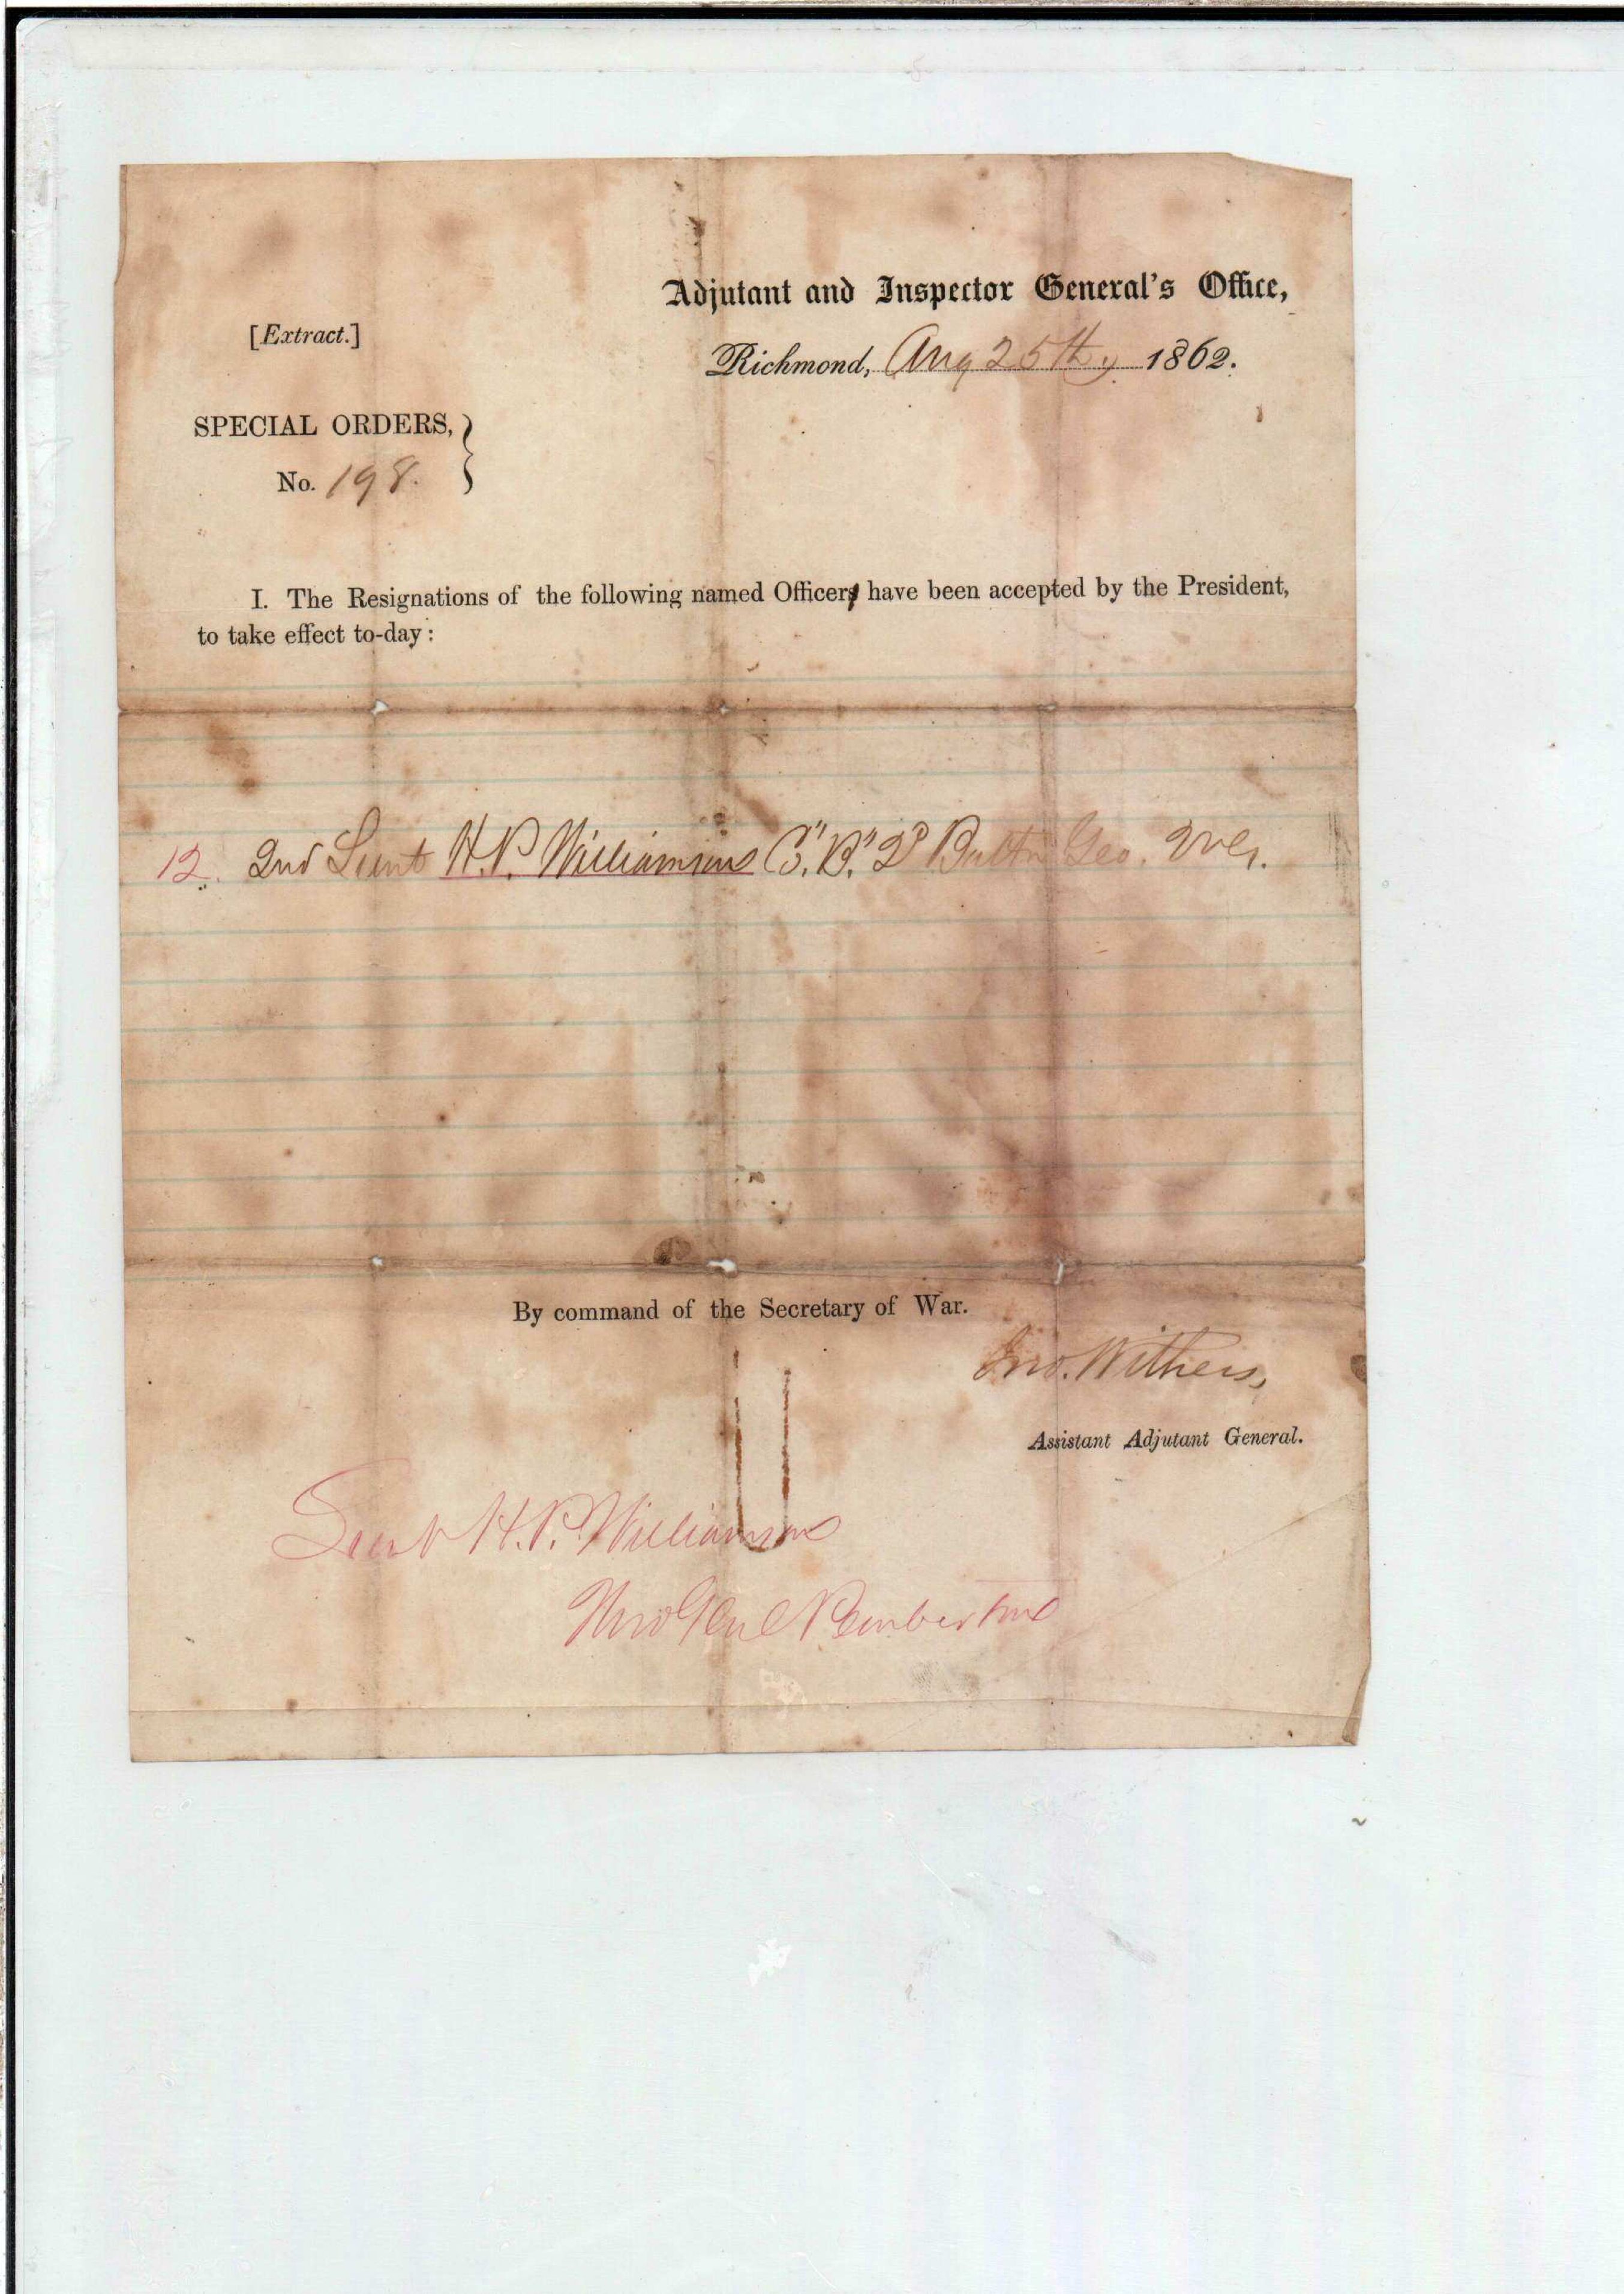 Adjutant and Inspector General's Office,
[Extract.]
Richmond, Aug 25th, 1862.
SPECIAL ORDERS,
No. 198.
I. The Resignations of the following named Officers have been accepted by the President,
to take effect to-day:
12. 2nd Lieut H. P. Williamson Co. "B." 2d Battn Geo. Vols.
By command of the Secretary of War.
Jno. Withers,
Assistant Adjutant General.
Lieut H. P. Williamson
Thro Genl Pemberton